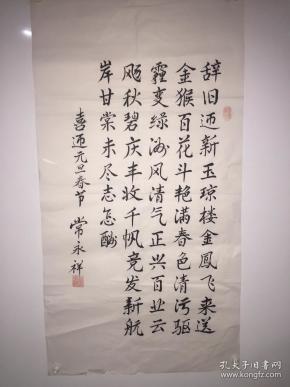 辞旧迎新玉琼楼金鳳飞来送
金猴百花斗艳满春色清污驱
霾变绿洲风清气正兴百业云
飏秋碧庆丰收千帆竞发新航
岸甘棠未尽志怎酬
喜迎元旦春节 常永祥
孔夫子旧书网